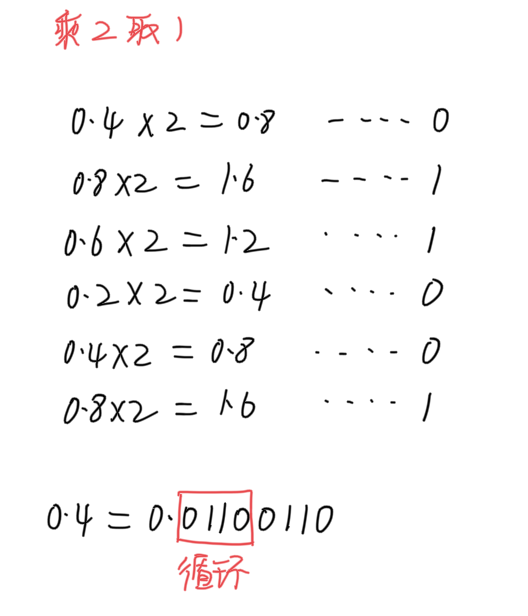 乘2取1
0.4×2=0.8 ---- 0
0.8×2=1.6 ---- 1
0.6×2=1.2 ···· 1
0.2×2=0.4 ···· 0
0.4×2=0.8 ···· 0
0.8×2=1.6 ···· 1
0.4=0.01100110
循环